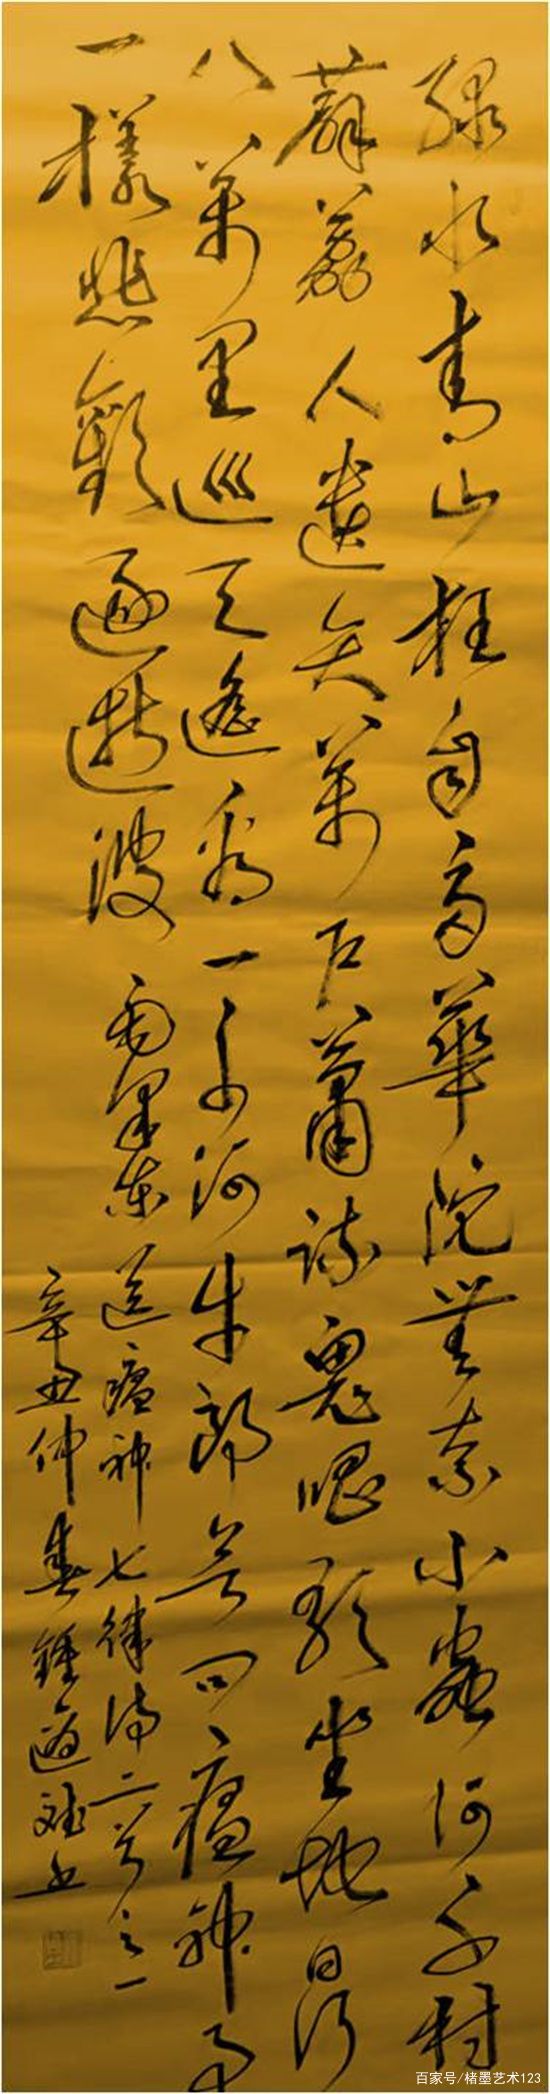 绿水青山枉自多華陀無奈小蟲何千村
薜荔人遺矢萬户蕭疏鬼唱歌坐地日行
八萬里巡天遥看一千河牛郎若问瘟神事
一樣悲歡逐逝波 毛泽东送瘟神七律诗二首之一
辛丑仲春鍾书
百家号/楮墨艺术123